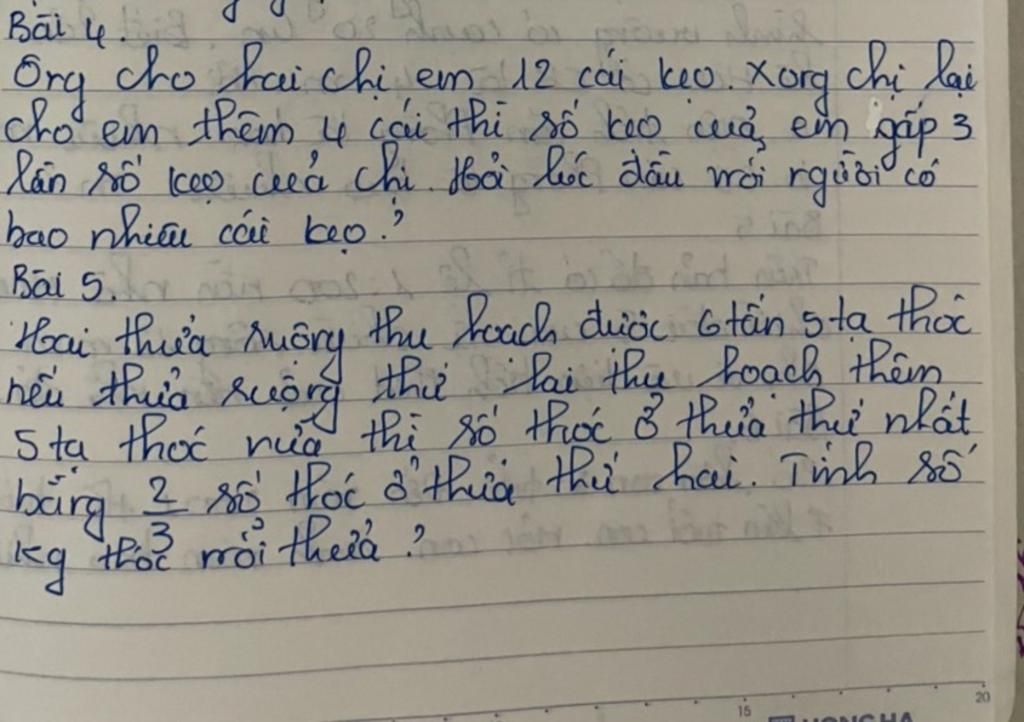 Bài 4.
Ông cho hai chị em 12 cái kẹo. Xong chị lại
cho em thêm 4 cái thì số kẹo của em gấp 3
lần số kẹo của chị. Hỏi lúc đầu mỗi người có
bao nhiêu cái kẹo?
Bài 5.
Hai thửa ruộng thu hoạch được 6 tấn 5 tạ thóc
nếu thửa ruộng thứ hai thu hoạch thêm
5 tạ thóc nữa thì số thóc ở thửa thứ nhất
bằng 2/3 số thóc ở thửa thứ hai. Tính số
kg thóc mỗi thửa?
15 20
HONG HA